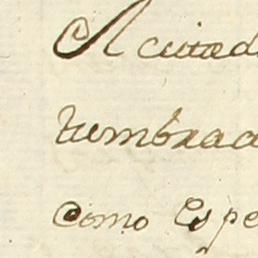 A citad
tumbrad
como Espe